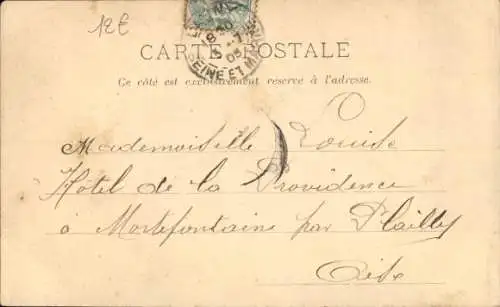 12€
CARTE POSTALE
SEINE ET M
Ce côté est exclusivement réservé à l'adresse.
Mademoiselle Louise
Hôtel de la Providence
à Mortefontaine par Plailly
Oise